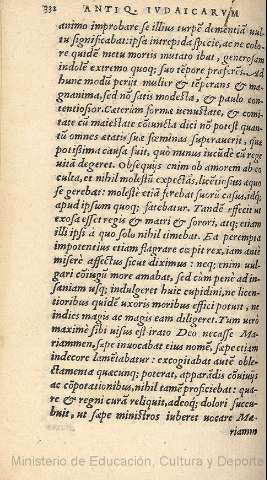 332 ANTIQ. IVDAICARVM
animo improbare se illius turpē dementiā vul
tu significabat: ipsa intrepida specie, ac ne colo
re quidē metu mortis mutato ibat, generosam
indolē extremo quoq; suo tēpore præferēs. Ad
hunc modū perijt mulier & tēperans & ma
gnanima, sed nō satis modesta, & paulo con
tentiosior. Cæterùm forma uenustate, & comi
tate cū maiestate cōiuncta dici nō potest quan
tū omnes ætatis suæ fœminas superauerit, quæ
potißima causa fuit, quò minus iucūdè cū rege
uitā degeret. Obsequijs enim ob amorem ab eo
culta, et nihil molestū expectās, licētius in eum quo
se gerebat: molestè etiā ferebat suorū casus, idq;
apud ipsum quoq; fatebatur. Tandē effecit ut
exosa esset regis & matri & sorori, atq; etiam
illi ipsi à quo solo nihil timebat. Ea perempta
impotentius etiam flagrare cœpit rex, iam antè
miserè affectus sicut diximus: neq; enim uul
gari cōiugū more amabat, sed cùm penè ad in-
saniam usq; indulgeret huic cupidini, ne licen
tioribus quidē uxoris moribus effici potuit, ne
indies magis ac magis eam diligeret. Tum verò
maximè sibi uisus est irato Deo necasse Ma-
riammen. sæpe inuocabat eius nomē, sæpe etiam
indecorè lamētabatur: excogitabat autē oble-
ctamenta quæcunq; poterat, apparādis cōuiuijs
ac cōpotationibus, nihil tamē proficiebat: qua-
re & regni curā reliquit, adeoq́; dolori succu-
buit, ut sæpe ministros iuberet uocare Ma-
riamm
Ministerio de Educación, Cultura y Deporte